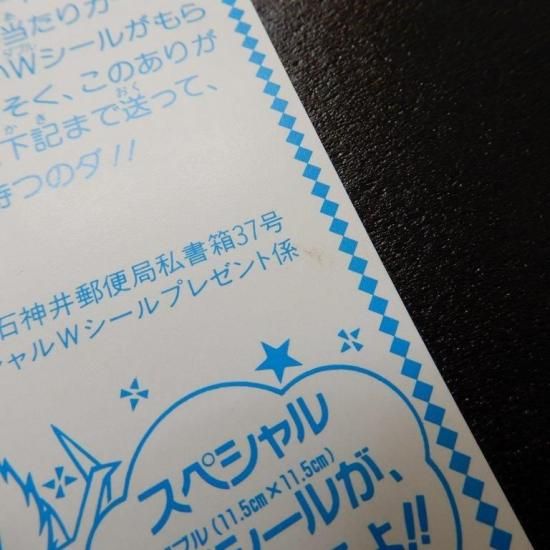 当たりが
Wシールがもら
そく、このありが
下記まで送って、
待つのダ!!
石神井郵便局私書箱37号
シャルWシールプレゼント係
スペシャル
フル(11.5cm×11.5cm)
シールが、
よ!!